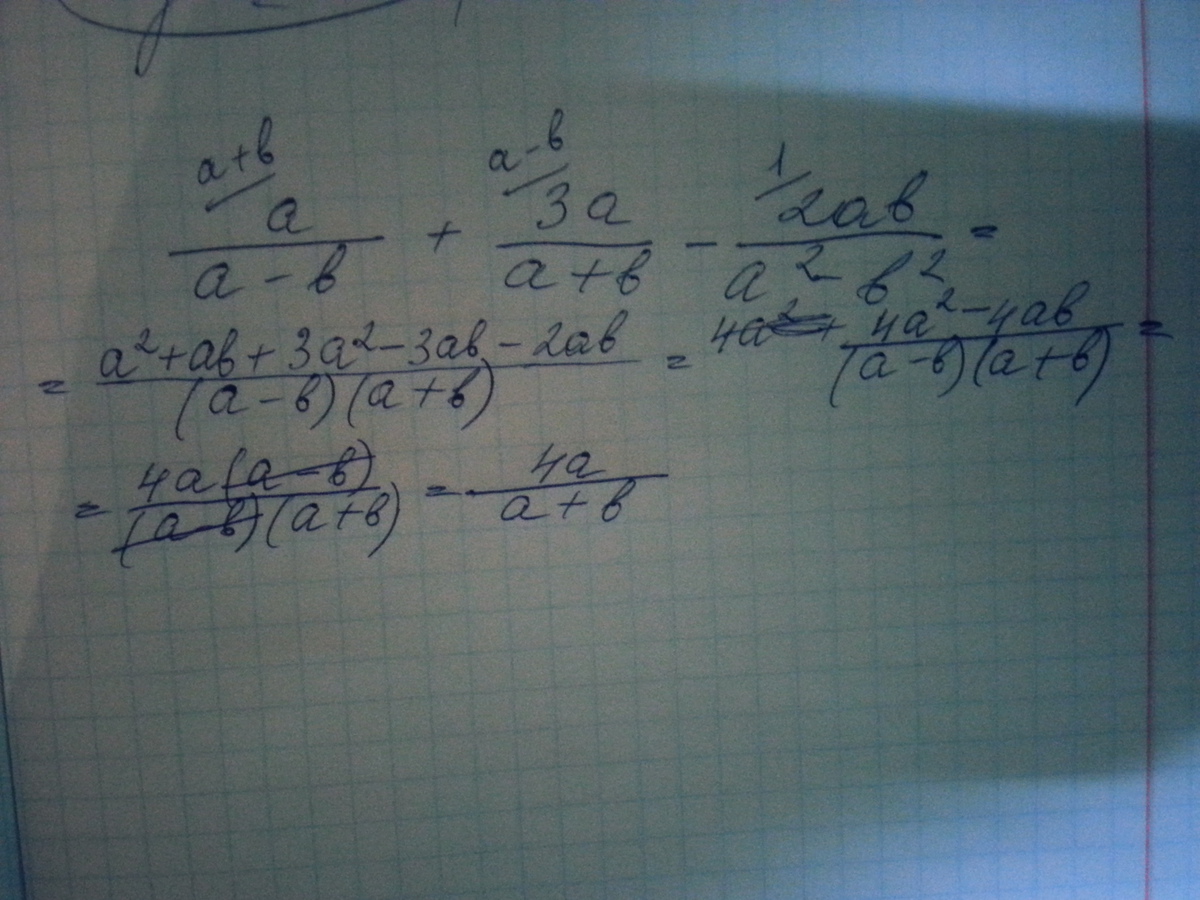 a+b a-b 1
a/(a-b) + 3a/(a+b) - 2ab/(a²-b²) =
= (a²+ab+3a²-3ab-2ab)/((a-b)(a+b)) = 4a²+ (4a²-4ab)/((a-b)(a+b)) =
= 4a(a-b)/((a-b)(a+b)) = 4a/(a+b)